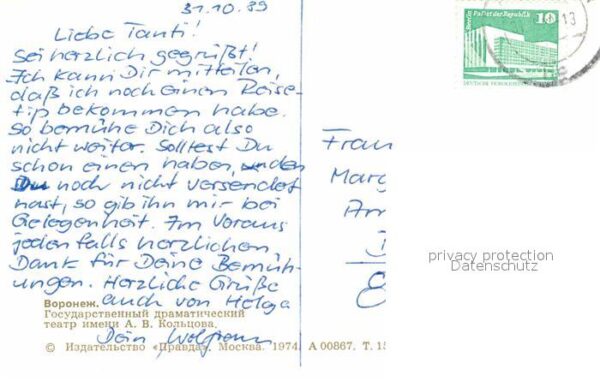 31.10.89
Liebe Tanti!
Sei herzlich gegrüßt!
Ich kann Dir mitteilen,
daß ich noch einen Reise-
tip bekommen habe.
So bemühe Dich also
nicht weiter. Solltest Du
schon einen haben, den
Du noch nicht versendet
hast, so gib ihn mir bei
Gelegenheit. Im Voraus
jedenfalls herzlichen
Dank für Deine Bemüh-
ungen. Herzliche Grüße
auch von Helga
Dein Wolfram
Воронеж.
Государственный драматический
театр имени А. В. Кольцова.
© Издательство «Правда». Москва. 1974. А 00867. Т. 15
Berlin Palast der Republik
10
13
Frau
Marg
Am
privacy protection
Datenschutz